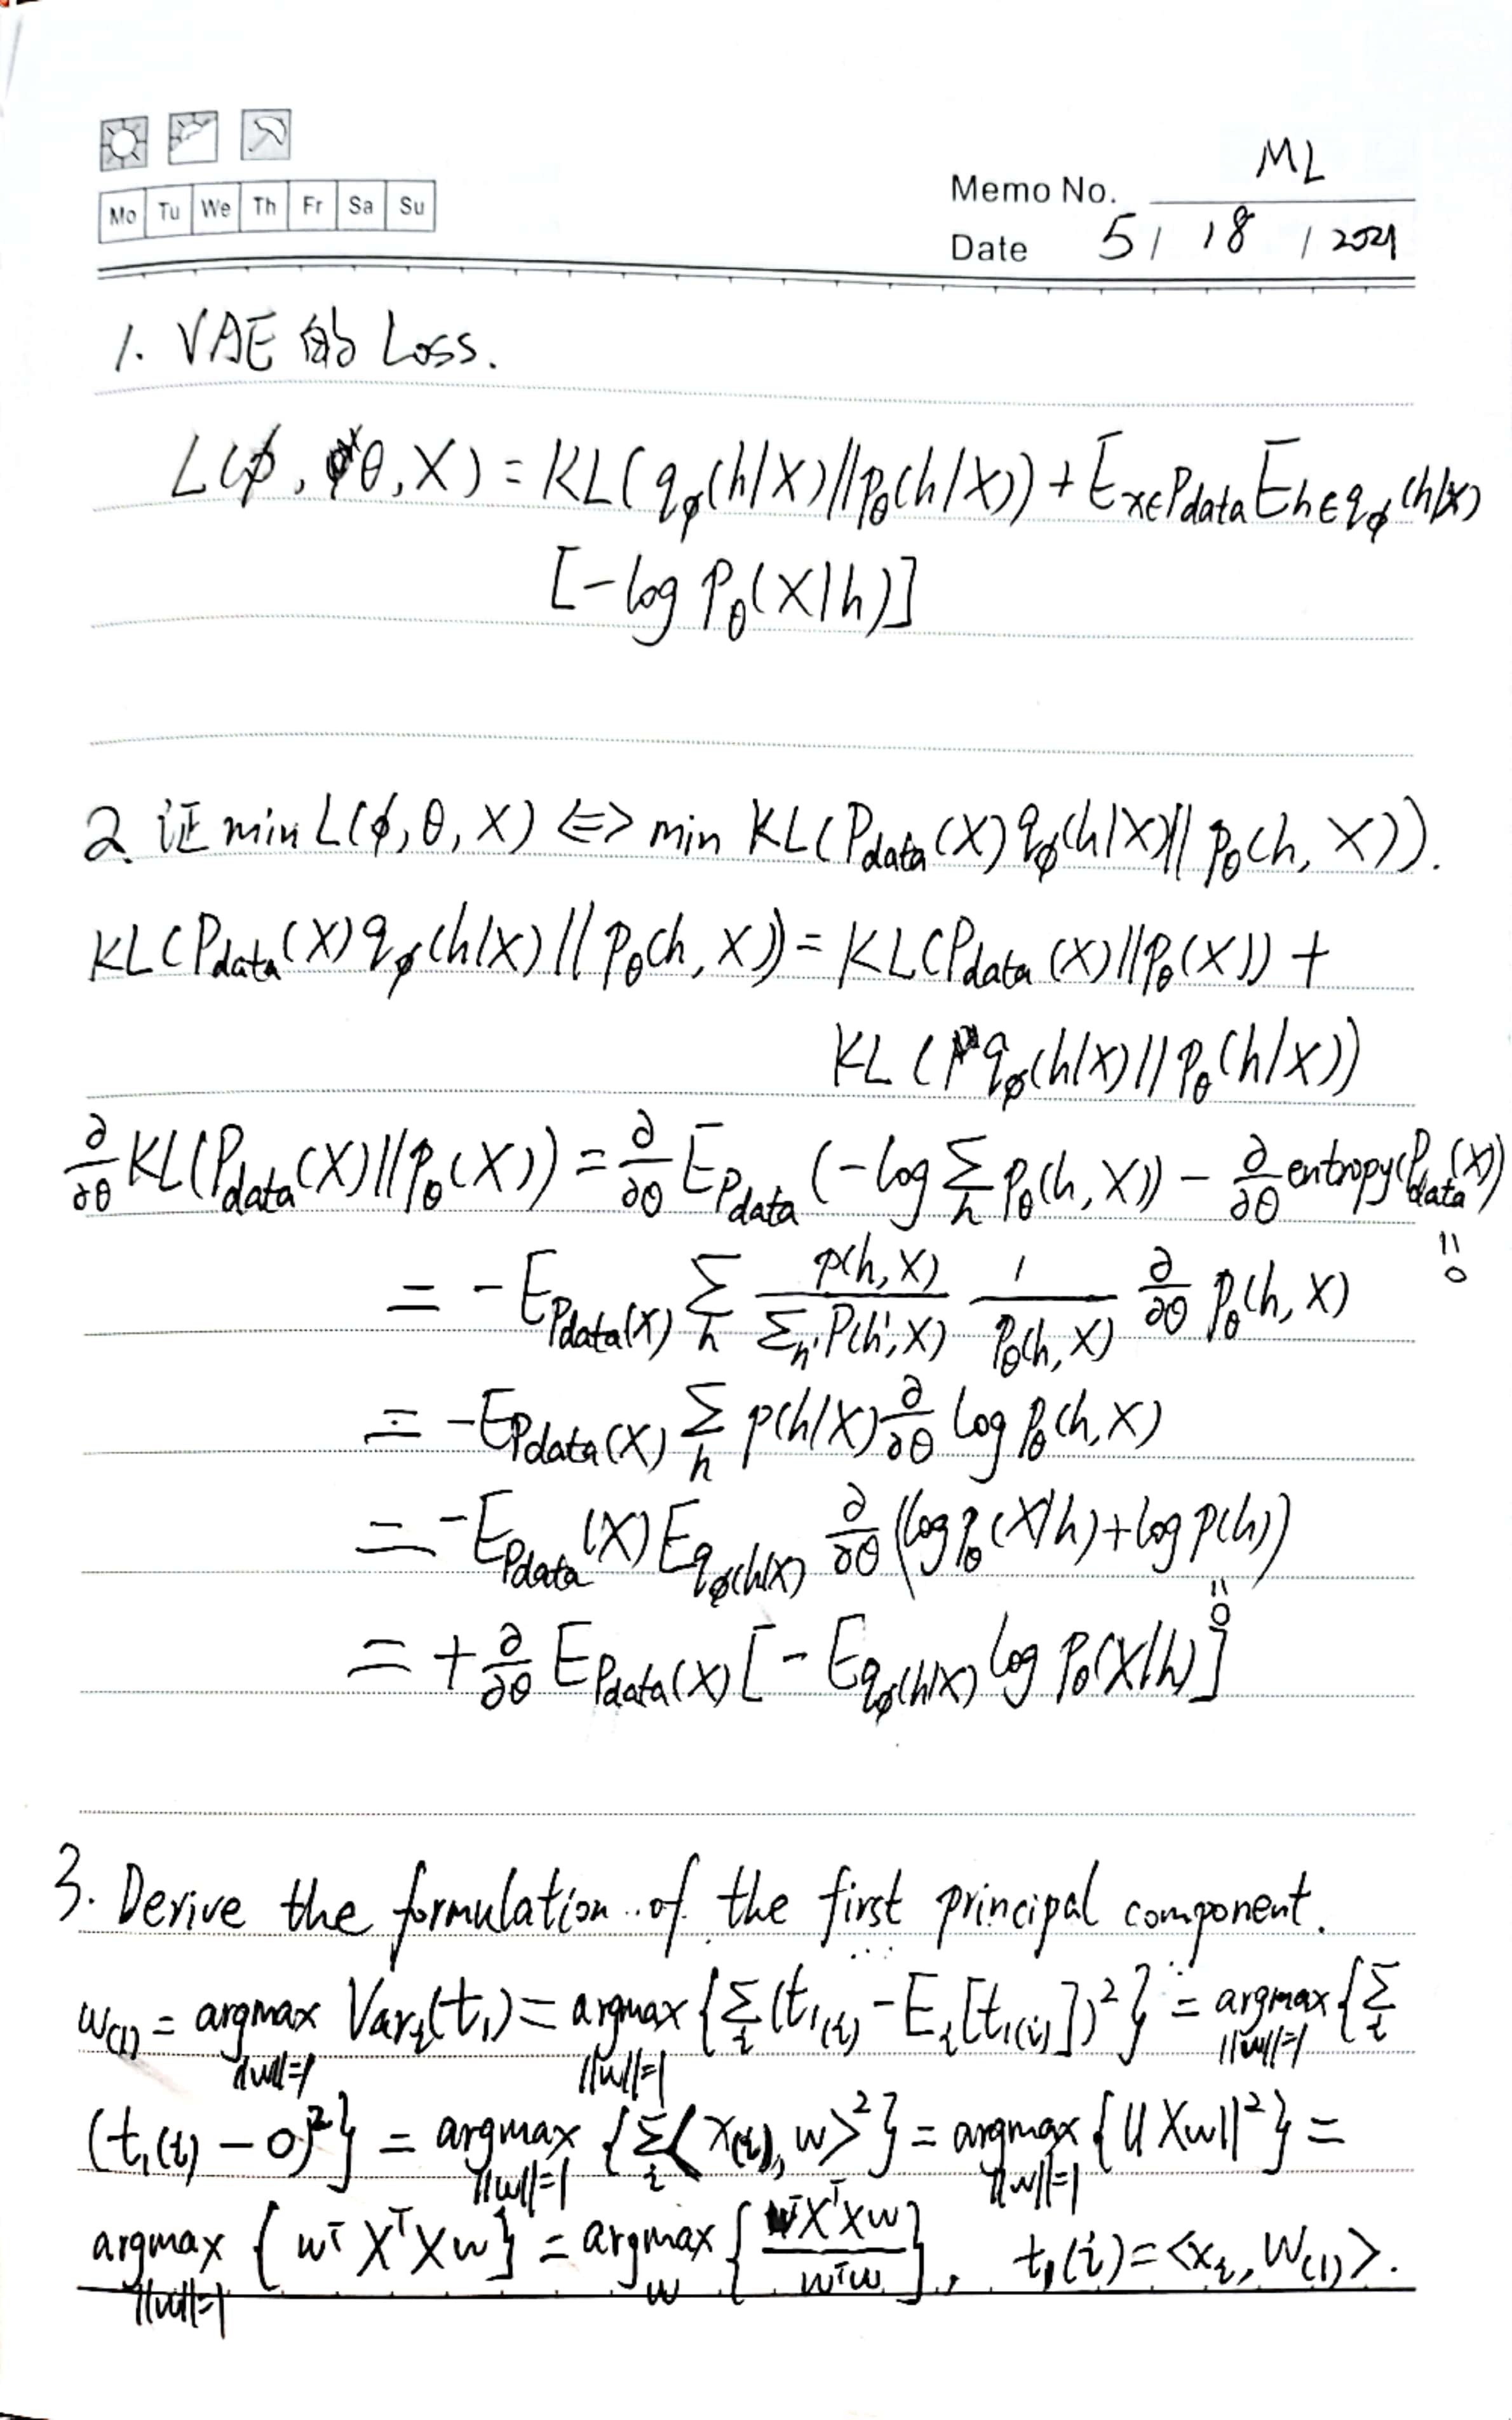 Mo Tu We Th Fr Sa Su
Memo No. ML
Date 5 / 18 / 2021
1. VAE 的 Loss.
L(ϕ, θ, X) = KL( q_ϕ(h|X) || p_θ(h|X)) + E_{x∈P_data} E_{h∈q_ϕ(h|x)}
[-log P_θ(X|h)]
2. 证 min L(ϕ, θ, X) ⇔ min KL(P_data(X) q_ϕ(h|X) || p_θ(h, X)).
KL(P_data(X) q_ϕ(h|X) || p_θ(h, X)) = KL(P_data(X) || p_θ(X)) +
KL( q_ϕ(h|X) || p_θ(h|X))
∂/∂θ KL(P_data(X) || p_θ(X)) = ∂/∂θ E_{P_data} (-log Σ_h p_θ(h, X)) - ∂/∂θ entropy(P_data(X))
= 0
= -E_{P_data(X)} Σ_h p(h, X)/Σ_{h'} P(h', X) 1/p_θ(h, X) ∂/∂θ p_θ(h, X)
= -E_{P_data(X)} Σ_h p(h|X) ∂/∂θ log p_θ(h, X)
= -E_{P_data}(X) E_{q_ϕ(h|X)} ∂/∂θ (log p_θ(X|h) + log p(h))
= 0
= + ∂/∂θ E_{P_data(X)} [- E_{q_ϕ(h|X)} log p_θ(X|h)]
3. Derive the formulation of the first principal component.
w_(1) = argmax_{||w||=1} Var_i(t_1) = argmax_{||w||=1} {Σ_i (t_{1(i)} - E_i[t_{1(i)}])²} = argmax_{||w||=1} {Σ_i
(t_1(i) - 0)²} = argmax_{||w||=1} {Σ_i <x_(i), w>²} = argmax_{||w||=1} {||Xw||²} =
argmax_{||w||=1} {w^T X^T X w} = argmax_w {w^T X^T X w / w^T w}, t_1(i) = <x_i, w_(1)>.